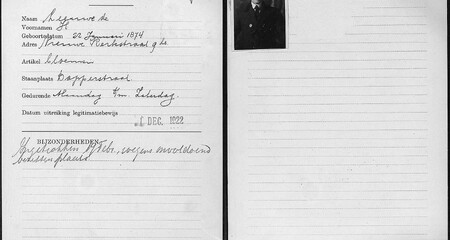 Naam
Voornamen
Geboortedatum 22 Januari 1874
Adres Nieuwe Kerkstraat
Artikel bloemen
Staanplaats Dapperstraat
Gedurende Maandag t/m Zaterdag.
Datum uitreiking legitimatiebewijs 6 DEC. 1922
BIJZONDERHEDEN
Ingetrokken Febr. wegens onvoldoend